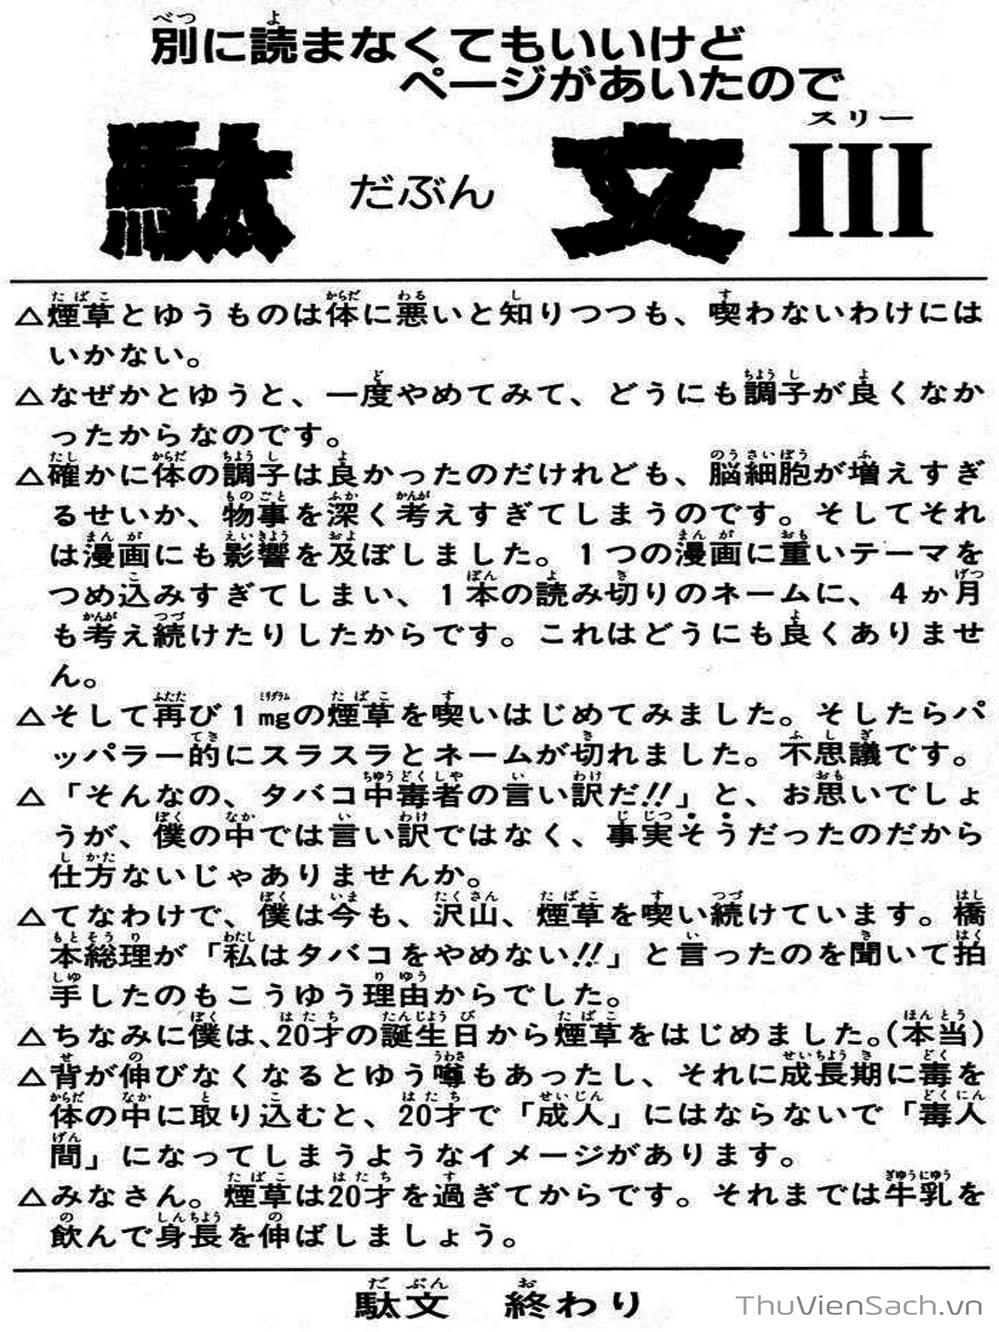 別に読まなくてもいいけど
ページがあいたので
駄文 だぶん III スリー
△煙草とゆうものは体に悪いと知りつつも、喫わないわけには
いかない。
△なぜかとゆうと、一度やめてみて、どうにも調子が良くなか
ったからなのです。
△確かに体の調子は良かったのだけれども、脳細胞が増えすぎ
るせいか、物事を深く考えすぎてしまうのです。そしてそれ
は漫画にも影響を及ぼしました。1つの漫画に重いテーマを
つめ込みすぎてしまい、1本の読み切りのネームに、4か月
も考え続けたりしたからです。これはどうにも良くありませ
ん。
△そして再び1mgの煙草を喫いはじめてみました。そしたらパ
ッパラー的にスラスラとネームが切れました。不思議です。
△「そんなの、タバコ中毒者の言い訳だ!!」と、お思いでしょ
うが、僕の中では言い訳ではなく、事実そうだったのだから
仕方ないじゃありませんか。
△てなわけで、僕は今も、沢山、煙草を喫い続けています。橋
本総理が「私はタバコをやめない!!」と言ったのを聞いて拍
手したのもこうゆう理由からでした。
△ちなみに僕は、20才の誕生日から煙草をはじめました。(本当)
△背が伸びなくなるとゆう噂もあったし、それに成長期に毒を
体の中に取り込むと、20才で「成人」にはならないで「毒人
間」になってしまうようなイメージがあります。
△みなさん。煙草は20才を過ぎてからです。それまでは牛乳を
飲んで身長を伸ばしましょう。
駄文 終わり
ThuVienSach.vn